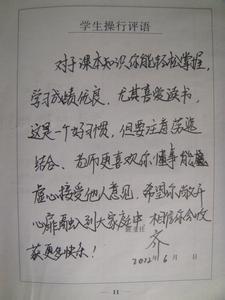 学生操行评语
对于课本知识你能轻松掌握,
学习成绩优良,尤其喜爱读书,
这是一个好习惯,但要注意劳逸
结合、老师更喜欢你懂事能
虚心接受他人意见,希望你敞开
心扉融入到大家庭中 相信你会收
获更多快乐!
班主任
齐
2012年6月 日
11